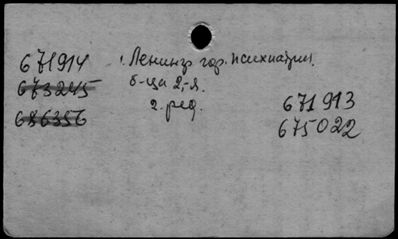 671914
673245
686356
Ленингр гор. психиатрич.
б-ца 2-я.
2. ред.
671913
675022